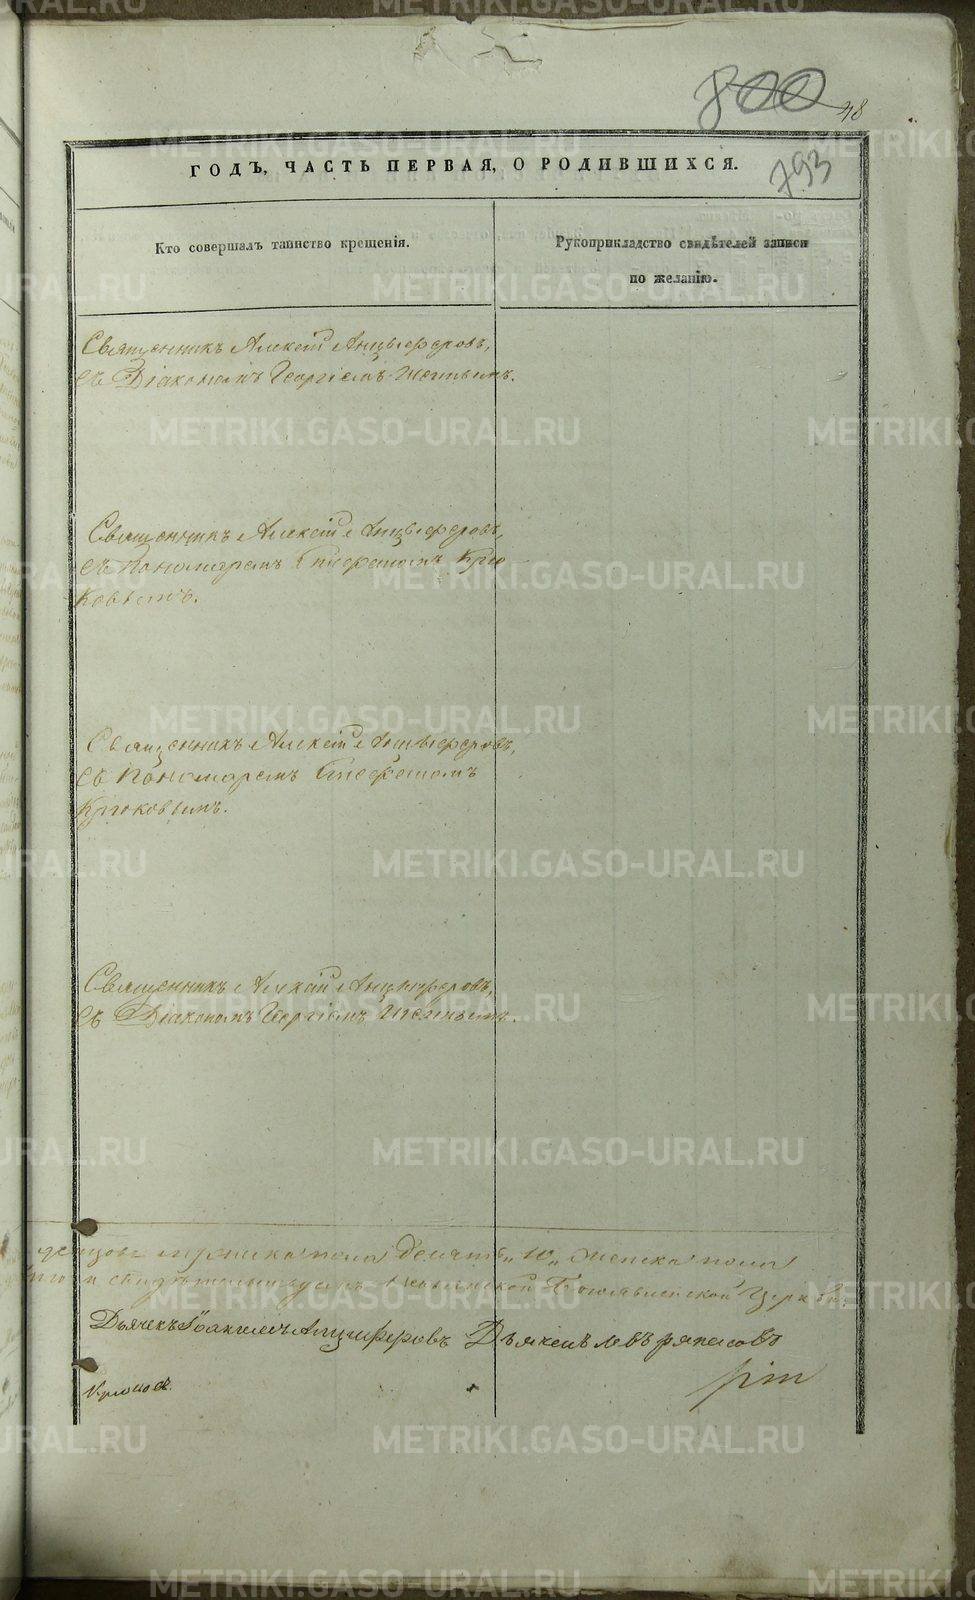 800
48
793
ГОДЪ, ЧАСТЬ ПЕРВАЯ, О РОДИВШИХСЯ.
Кто совершалъ таинство крещенія.
Рукоприкладство свидѣтелей записи
по желанію.
Священникъ Алексій Анцыферовъ,
съ Діакономъ Георгіемъ
Священникъ Алексій Анцыферовъ,
съ Пономаремъ Стефаномъ Крю
ковымъ.
Священникъ Алексій Анцыферовъ,
съ Пономаремъ Стефаномъ
Крюковымъ.
Священникъ Алексій Анцыферовъ,
съ Діакономъ Георгіемъ
пола Десять „10„ женска пола
Богоявленской Церкви
Дьячекъ Іоакимъ Анцыферовъ
METRIKI.GASO-URAL.RU